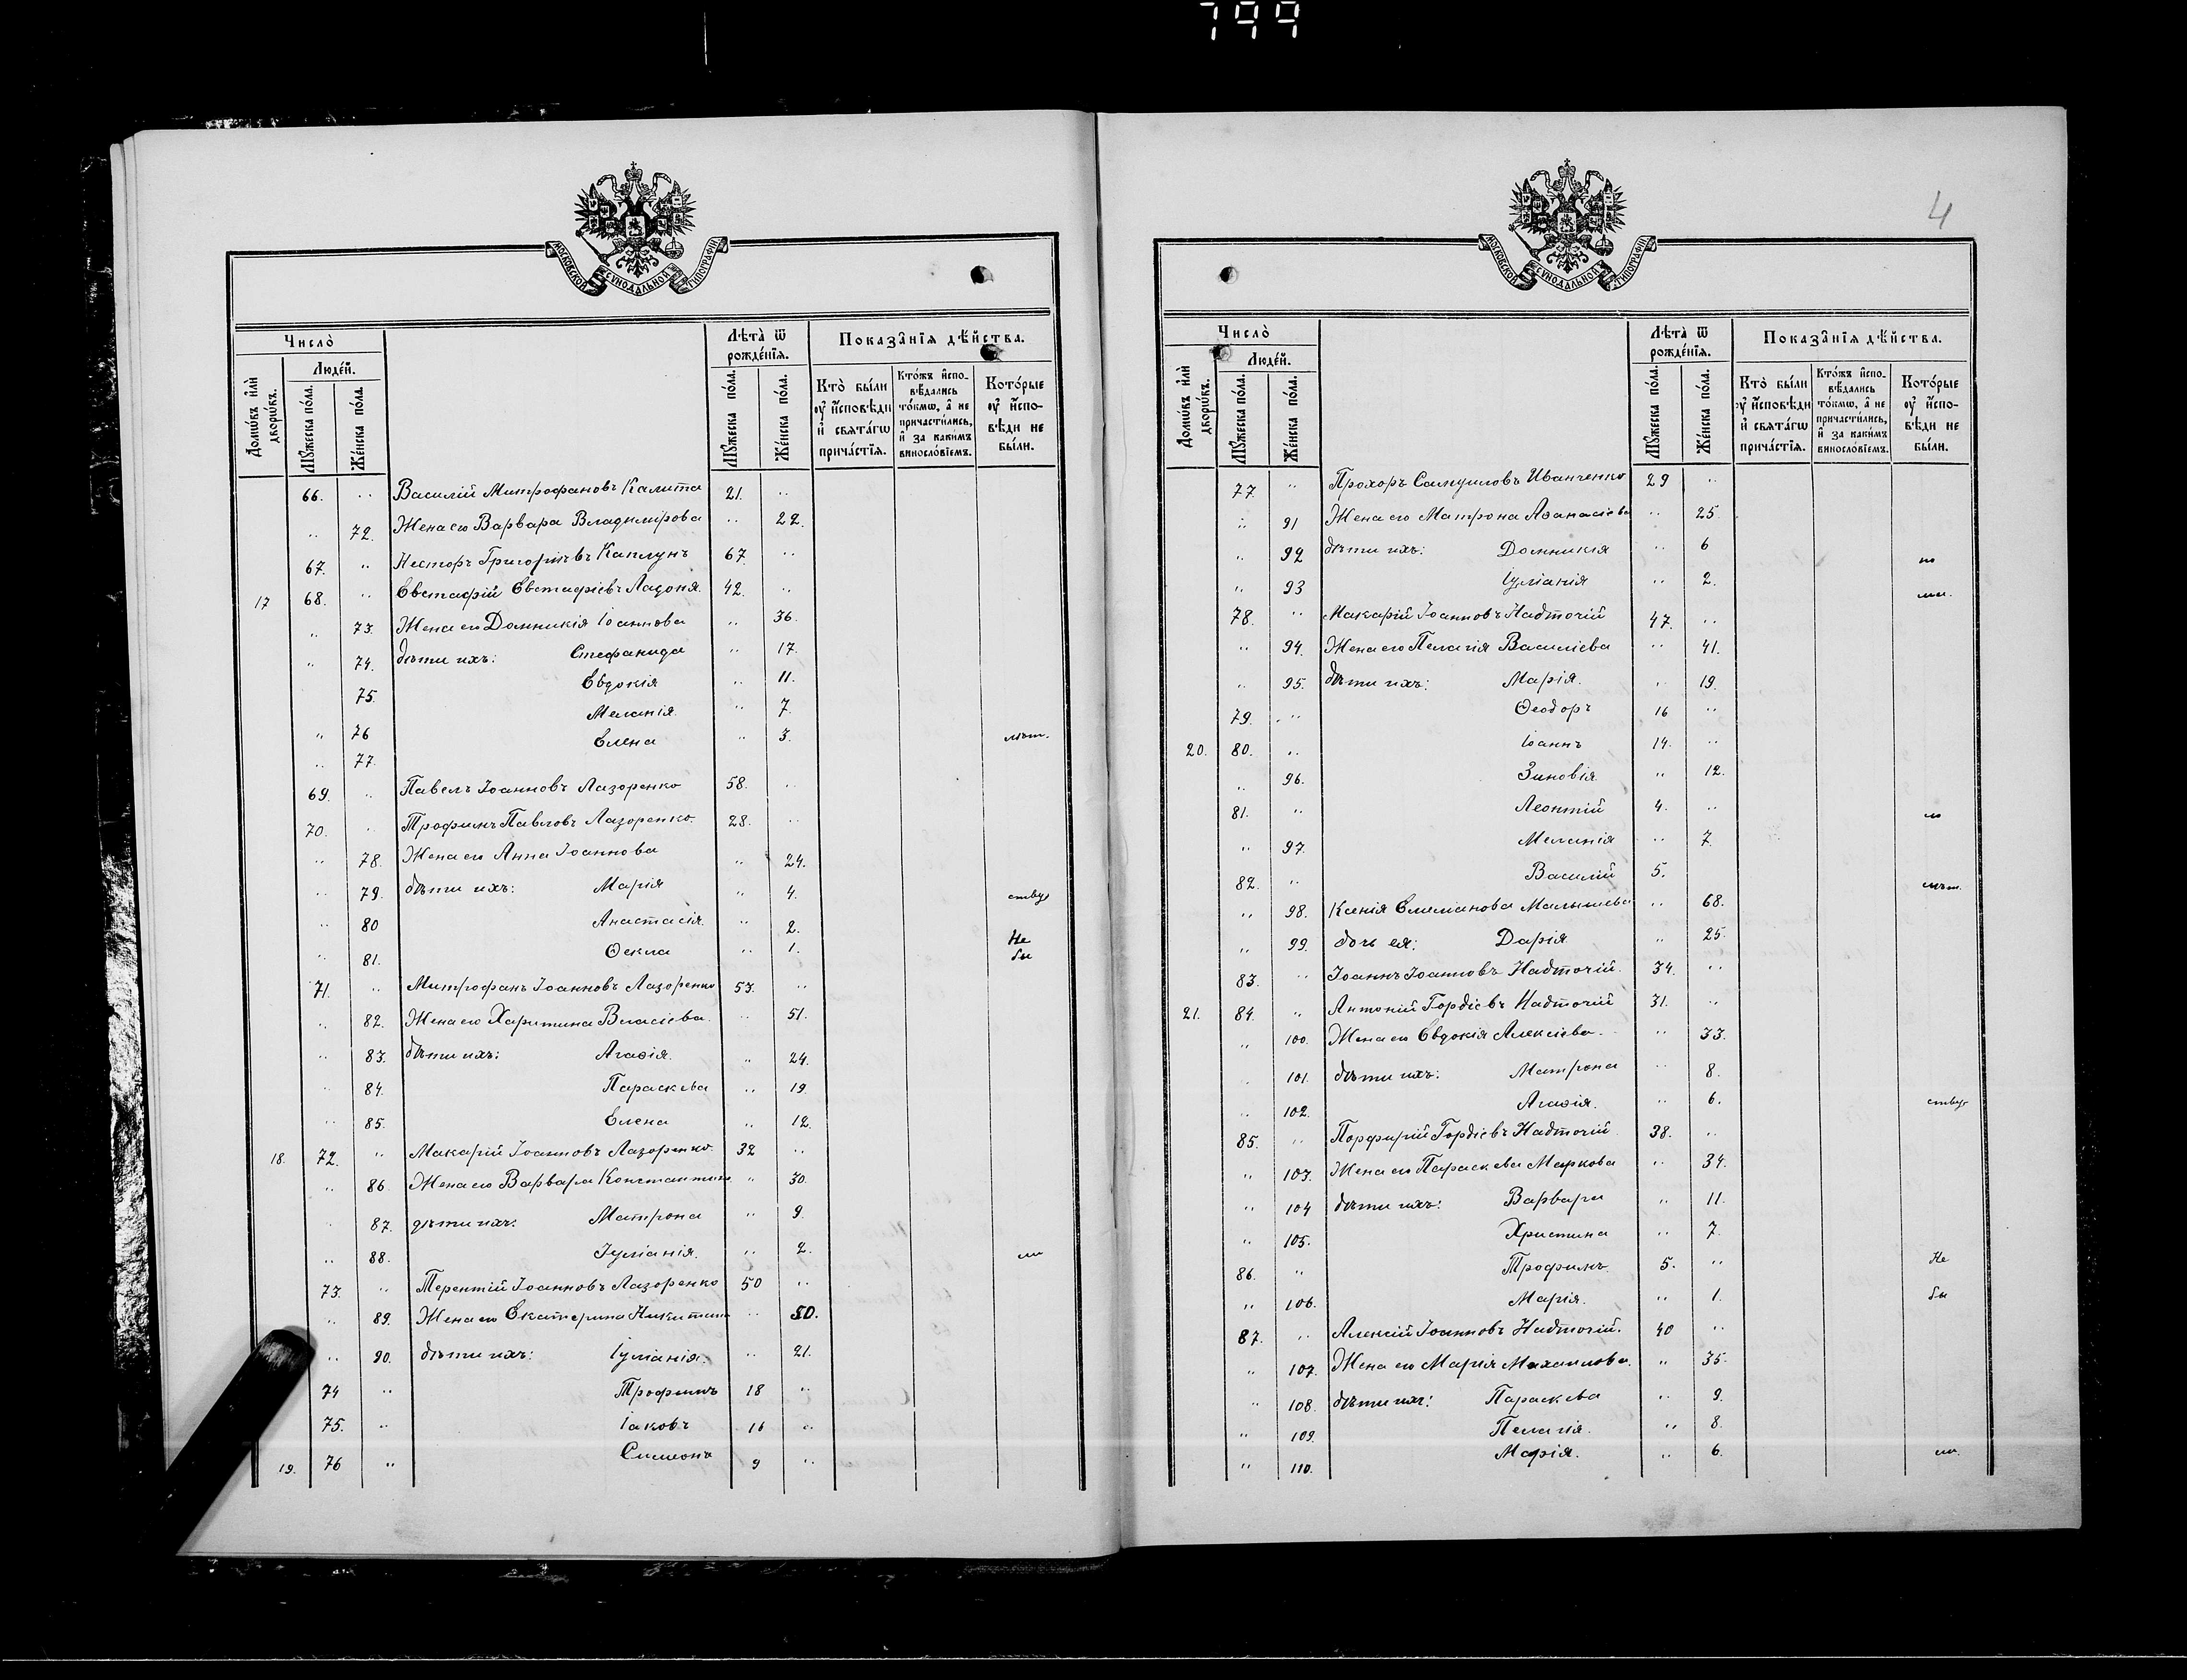 799
МОСКОВСКОЙ СѴНОДАЛЬНОЙ ТИПОГРАФІИ
Число̀
Лѣта̀ ѿ рожде́нїѧ.
Показа̑нїѧ дѣ́йства.
Домѡ́въ и҆лѝ дворѡ́въ.
Люде́й.
Мꙋ́жеска по́ла.
Же́нска по́ла.
Мꙋ́жеска по́ла.
Же́нска по́ла.
Кто̀ бы́ли ᲂу҆ и҆́сповѣди и҆ свѧта́гѡ прича́стїѧ.
Кто́жъ и҆сповѣ́дались то́кмѡ, а҆ не причасти́лись, и҆ за каки́мъ винослóвїемъ.
Кото́рые ᲂу҆ и҆́сповѣди не бы́ли.
66. .. Василій Митрофановъ Калита 21. ..
.. 72. Жена его Варвара Владимірова .. 22.
67. .. Несторъ Григоріевъ Каплунъ 67. ..
17 68. .. Евстафій Евстафіевъ Ладоня 42. ..
.. 73. Жена его Домникія Іоаннова .. 36.
.. 74. дѣти ихъ: Стефанида .. 17.
75. Евдокія .. 11.
.. 76 Меланія .. 7.
.. 77. Елена .. 3. лѣт.
69. .. Павелъ Іоанновъ Лазоренко 58. ..
70. .. Трофимъ Павловъ Лазоренко. 28. ..
.. 78. Жена его Анна Іоаннова .. 24.
.. 79. дѣти ихъ: Марія .. 4. ству
.. 80 Анастасія .. 2.
.. 81. Ѳекла .. 1. Не бы
71. .. Митрофанъ Іоанновъ Лазоренко 53. ..
.. 82. Жена его Харитина Власіева. .. 51.
.. 83. дѣти ихъ: Агаѳія. .. 24.
.. 84. Параскева .. 19.
.. 85. Елена .. 12.
18. 72. .. Макарій Іоанновъ Лазоренко 32 ..
.. 86. Жена его Варвара Константин .. 30.
.. 87. дѣти ихъ: Матрона .. 9.
.. 88. Іуліанія. .. 2. ли
73. .. Терентій Іоанновъ Лазоренко 50 ..
.. 89. Жена его Екатерина Никитина .. 50.
.. 90. дѣти ихъ: Іуліанія. .. 21.
74 .. Трофимъ 18 ..
75. .. Іаковъ 16 ..
19. 76 .. Симеонъ 9 ..
4
МОСКОВСКОЙ СѴНОДАЛЬНОЙ ТИПОГРАФІИ
Число̀
Лѣта̀ ѿ рожде́нїѧ.
Показа̑нїѧ дѣ́йства.
Домѡ́въ и҆лѝ дворѡ́въ.
Люде́й.
Мꙋ́жеска по́ла.
Же́нска по́ла.
Мꙋ́жеска по́ла.
Же́нска по́ла.
Кто̀ бы́ли ᲂу҆ и҆́сповѣди и҆ свѧта́гѡ прича́стїѧ.
Кто́жъ и҆сповѣ́дались то́кмѡ, а҆ не причасти́лись, и҆ за каки́мъ винослóвїемъ.
Кото́рые ᲂу҆ и҆́сповѣди не бы́ли.
77. .. Прохоръ Самуиловъ Иванченко 29 ..
.. 91 Жена его Матрона Аѳанасіева .. 25.
.. 92 дѣти ихъ: Домникія .. 6 по
.. 93 Іуліанія .. 2. мал.
78. .. Макарій Іоанновъ Надточій 47. ..
.. 94. Жена его Пелагія Василіева .. 41.
.. 95. дѣти ихъ: Марія. .. 19.
79. .. Ѳеодоръ 16 ..
20. 80. .. Іоаннъ 14. ..
.. 96. Зиновія .. 12.
81. .. Леонтій 4. .. ло
.. 97. Меланія .. 7.
82. .. Василій 5. лѣт.
.. 98. Ксенія Емеліанова Малышева .. 68.
.. 99. дочь ея: Дарія .. 25.
83. .. Іоаннъ Іоанновъ Надточій. 34. ..
21. 84. .. Антоній Гордіевъ Надточій 31. ..
.. 100. Жена его Евдокія Алексіева. .. 33.
.. 101. дѣти ихъ: Матрона .. 8.
.. 102. Агаѳія. .. 6. ству
85. .. Порфирій Гордіевъ Надточій 38. ..
.. 103. Жена его Параскева Маркова .. 34.
.. 104 дѣти ихъ: Варвара .. 11.
.. 105. Христина .. 7.
86. .. Трофимъ 5. .. Не
.. 106. Марія. .. 1. бы
87. .. Алексій Іоанновъ Надточій. 40 ..
.. 107. Жена его Марія Михаилова. .. 35.
.. 108. дѣти ихъ: Параскева .. 9.
.. 109. Пелагія. .. 8.
.. 110. Марія. .. 6. ли.